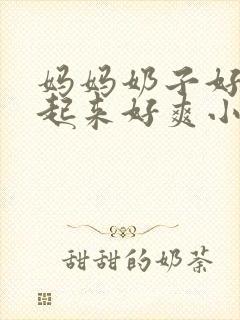 妈妈奶子好
起来好爽小
甜甜的奶茶